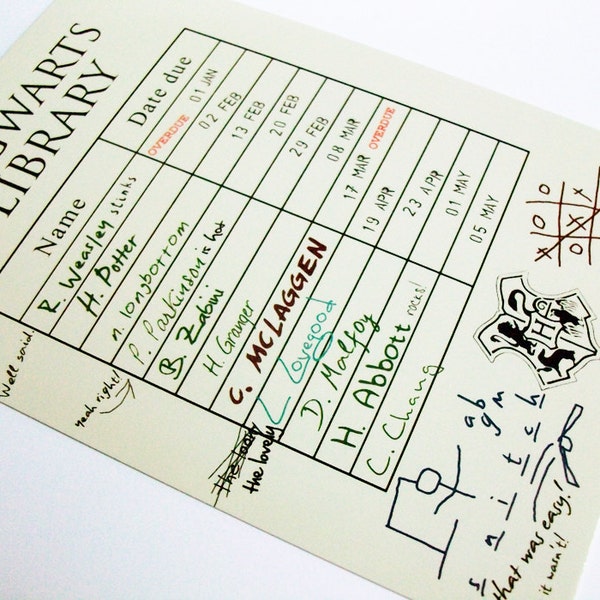 WARTS
LIBRARY
Name Date due
R. Weasley stinks OVERDUE 01 JAN
H. Potter 02 FEB
N. Longbottom 13 FEB
P. Parkinson is hot 20 FEB
B. Zabini 29 FEB
H. Granger 08 MAR
C. MCLAGGEN 17 MAR OVERDUE
L Lovegood 19 APR
D. Malfoy 23 APR
H. Abbott rocks! 01 MAY
C. Chang 05 MAY
Well said.
Yeah right!
the loony
the lovely
H
a b
g m
s n i t c h
that was easy!
it wasn't!